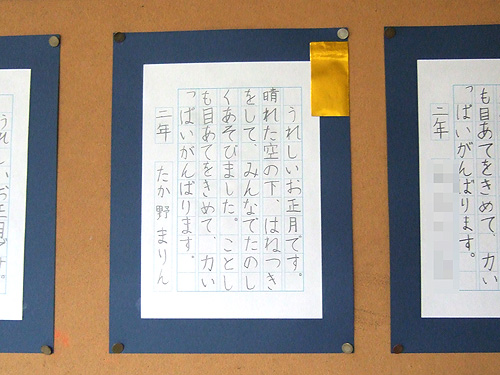 うれしいお正月です。
晴れた空の下、はねつき
をして、みんなでたのし
くあそびました。ことし
も目あてをきめて、力い
っぱいがんばります。
二年 たか野まりん
も目あてをきめて、力い
っぱいがんばります。
二年
うれしいお正月です。